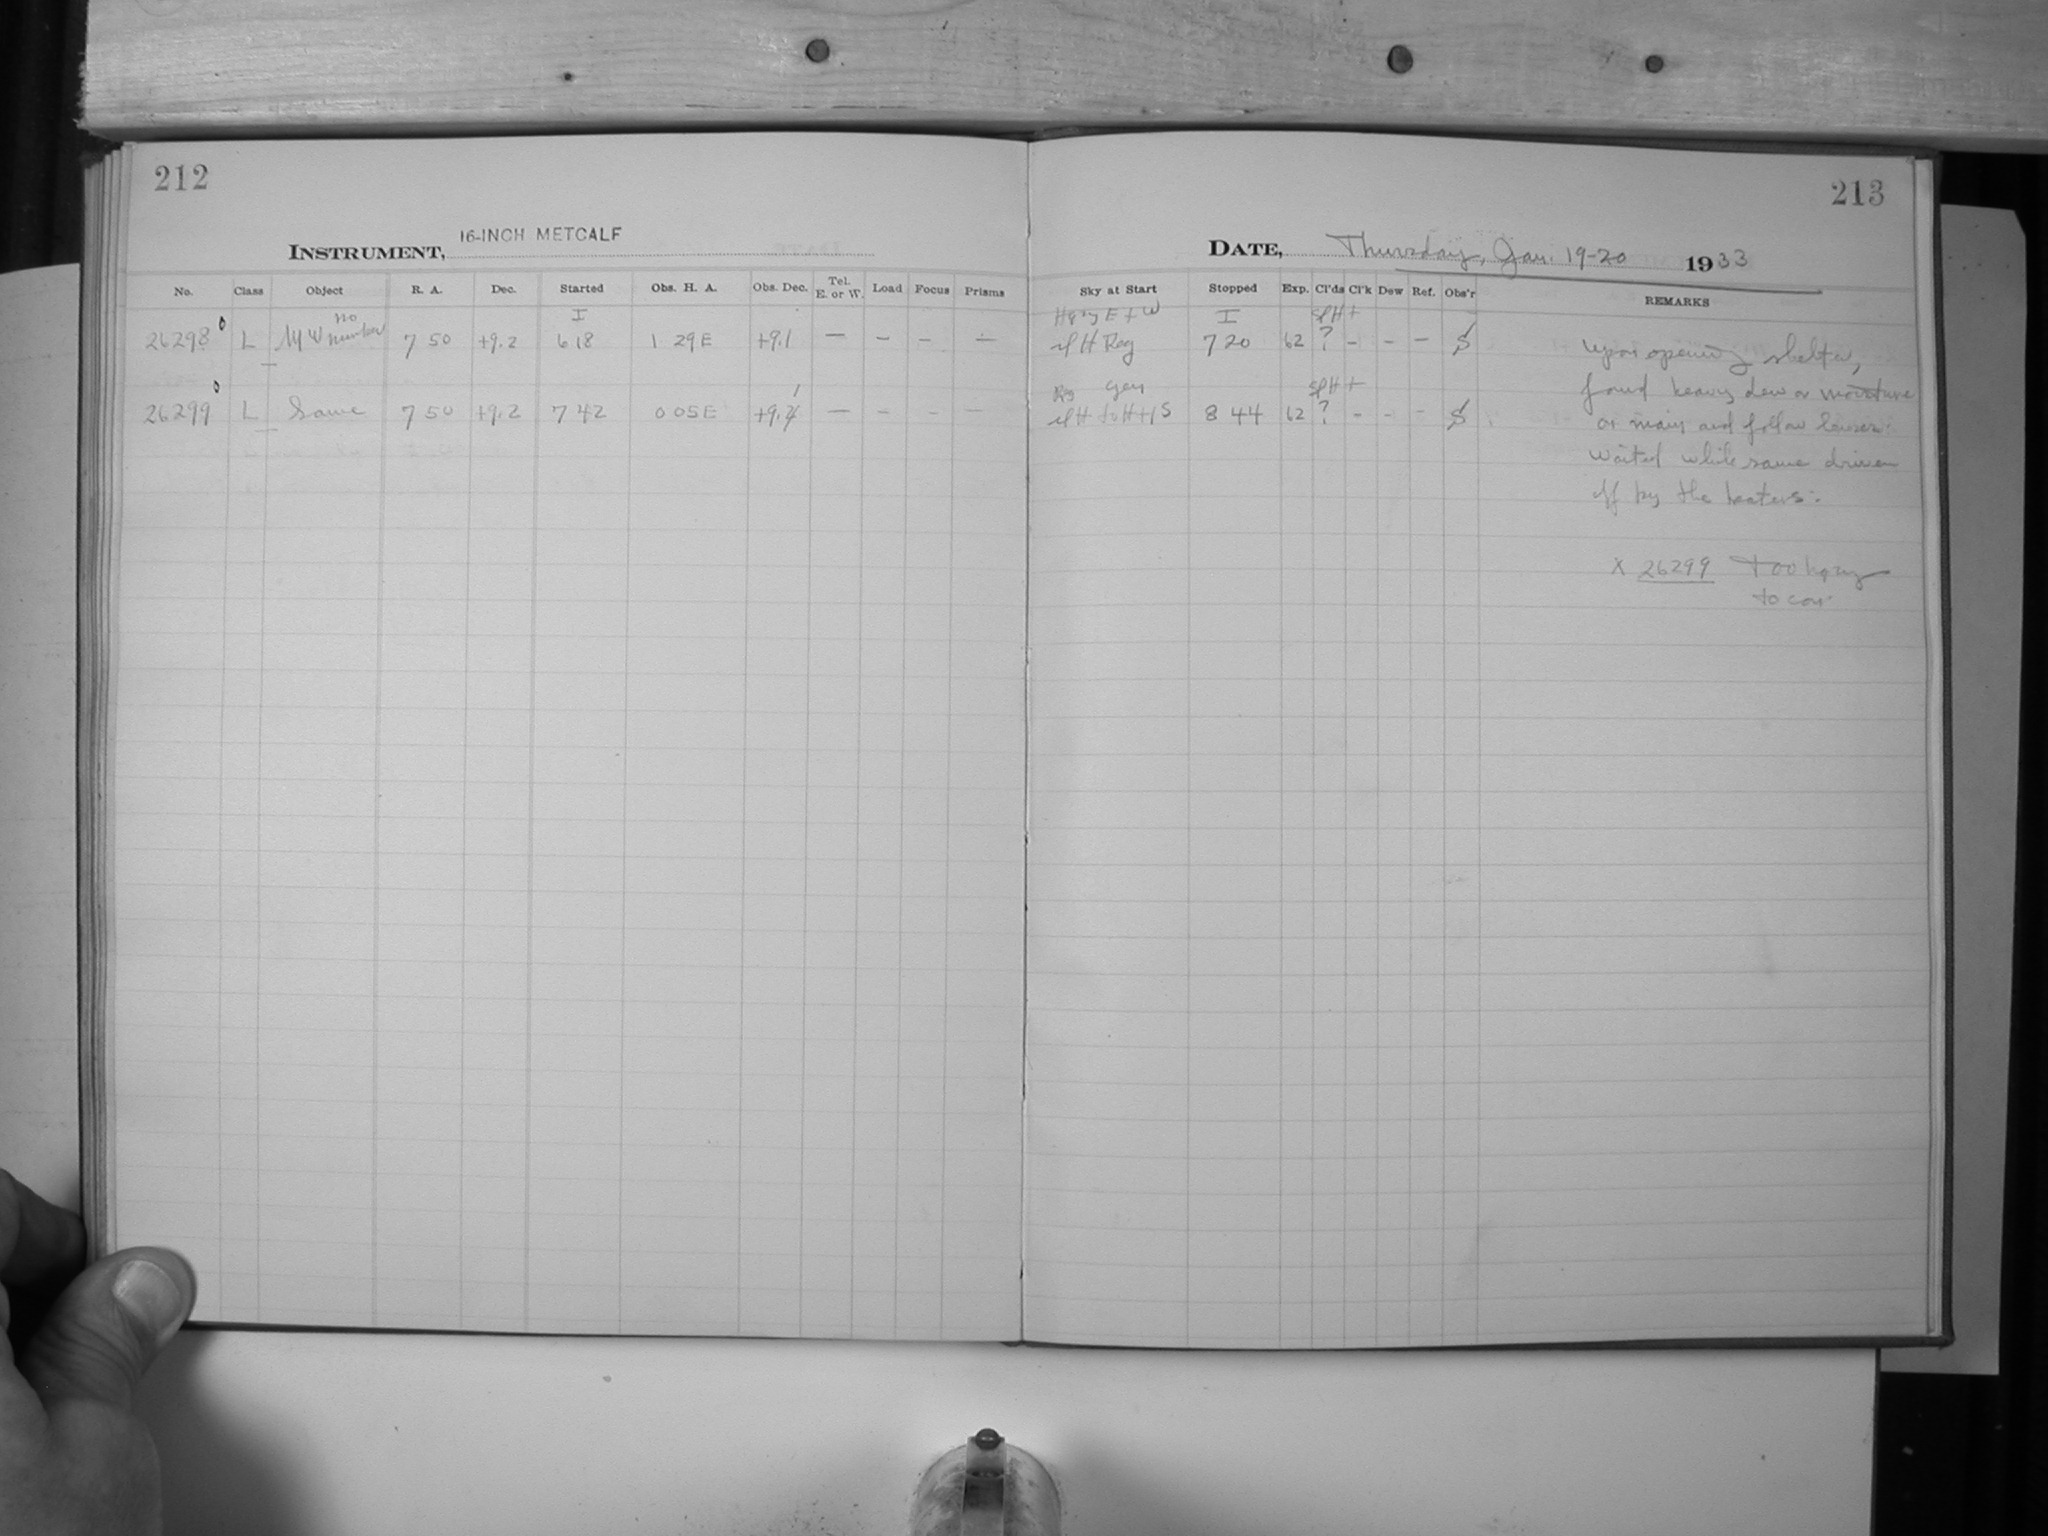 212
213
INSTRUMENT, 16-INCH METCALF
DATE, Thursday, Jan. 19-20 1933
No. Class Object R. A. Dec. Started Obs. H. A. Obs. Dec. Tel. E. or W. Load Focus Prisms
Sky at Start Stopped Exp. Cl'ds Cl'k Dew Ref. Obs'r REMARKS
26298 L MW no number 7 50 +9.2 I 618 1 29E +9.1 — — — —
Hazy E + W I 720 62 ? - - -
26299 L Same 7 50 +9.2 7 42 0 05E — — — —
8 44 62 ? - - -
upon opening shelter,
found heavy dew or moisture
on main and follow lenses.
Waited while same driven
off by the heaters.
X 26299 Too hazy
to con